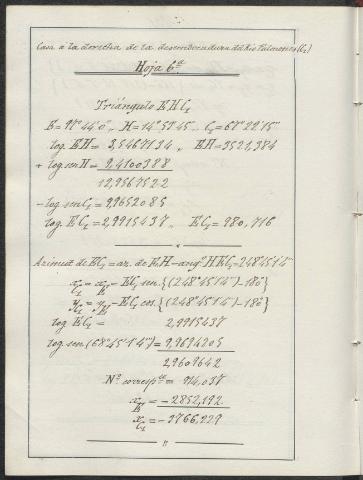 Casa a la derecha de la desembocadura del Rio Palmones (C₂)
Hoja 6ª
Triángulo E H C₂
E = 97° 44' 0" „ H = 14° 53' 45" „ C₂ = 67° 22' 15"
log. EH = 3,5467134 „ EH = 3521,384
+ log. sen H = 9,4100388
12,9567522
- log. sen C₂ = 9,9652085
log. E C₂ = 2,9915437 „ E C₂ = 980,716
Azimut de E C₂ = az. de E H - angº H E C₂ = 248°45'1"4
x = x - E C₂ sen. {(248°45'1"4) - 180°}
C₂ E
y = y - E C₂ cos. {(248°45'1"4) - 180°}
C₂ E
log E C₂ = 2,9915437
log. sen (68°45'1"4) = 9,9694205
2,9609642
Nº corresp.te = 914,037
x = - 2852,192
E
x = - 3766,229
C₂